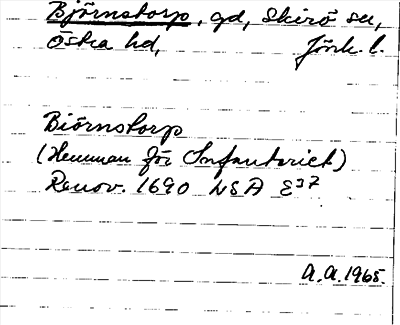 Björnstorp, gd, Skirö sn,
Östra hd, Jönk. l.
Biörnstorp
(Hemman för Infanteriet)
Renov. 1690 LSA E37
A.A. 1965.